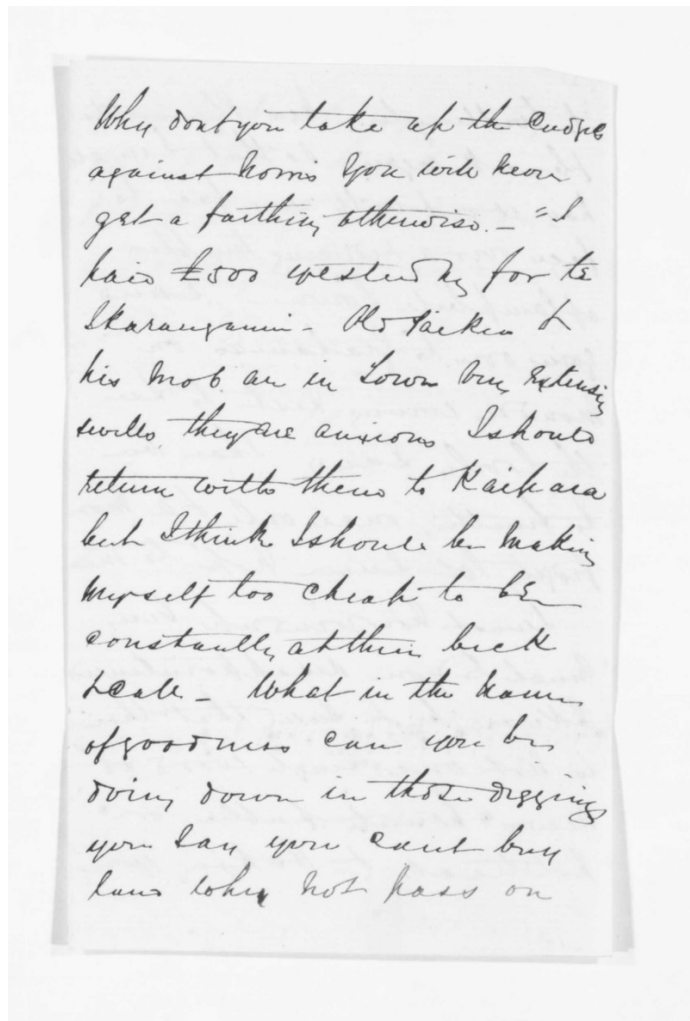 Why dont you take up the Cudgels
against Norris You will never
get a farthing otherwise. – "I
paid £500 yesterday for te
Ikaraunganui – Old Parker &
his mob are in Town very Extensive
swells, they are anxious I should
return with them to Kaikara
but I think I should be making
myself too cheap to be
constantly at their beck
& call – What in the name
of goodness can you be
doing down in those diggings
you say you can't buy
land why not pass on